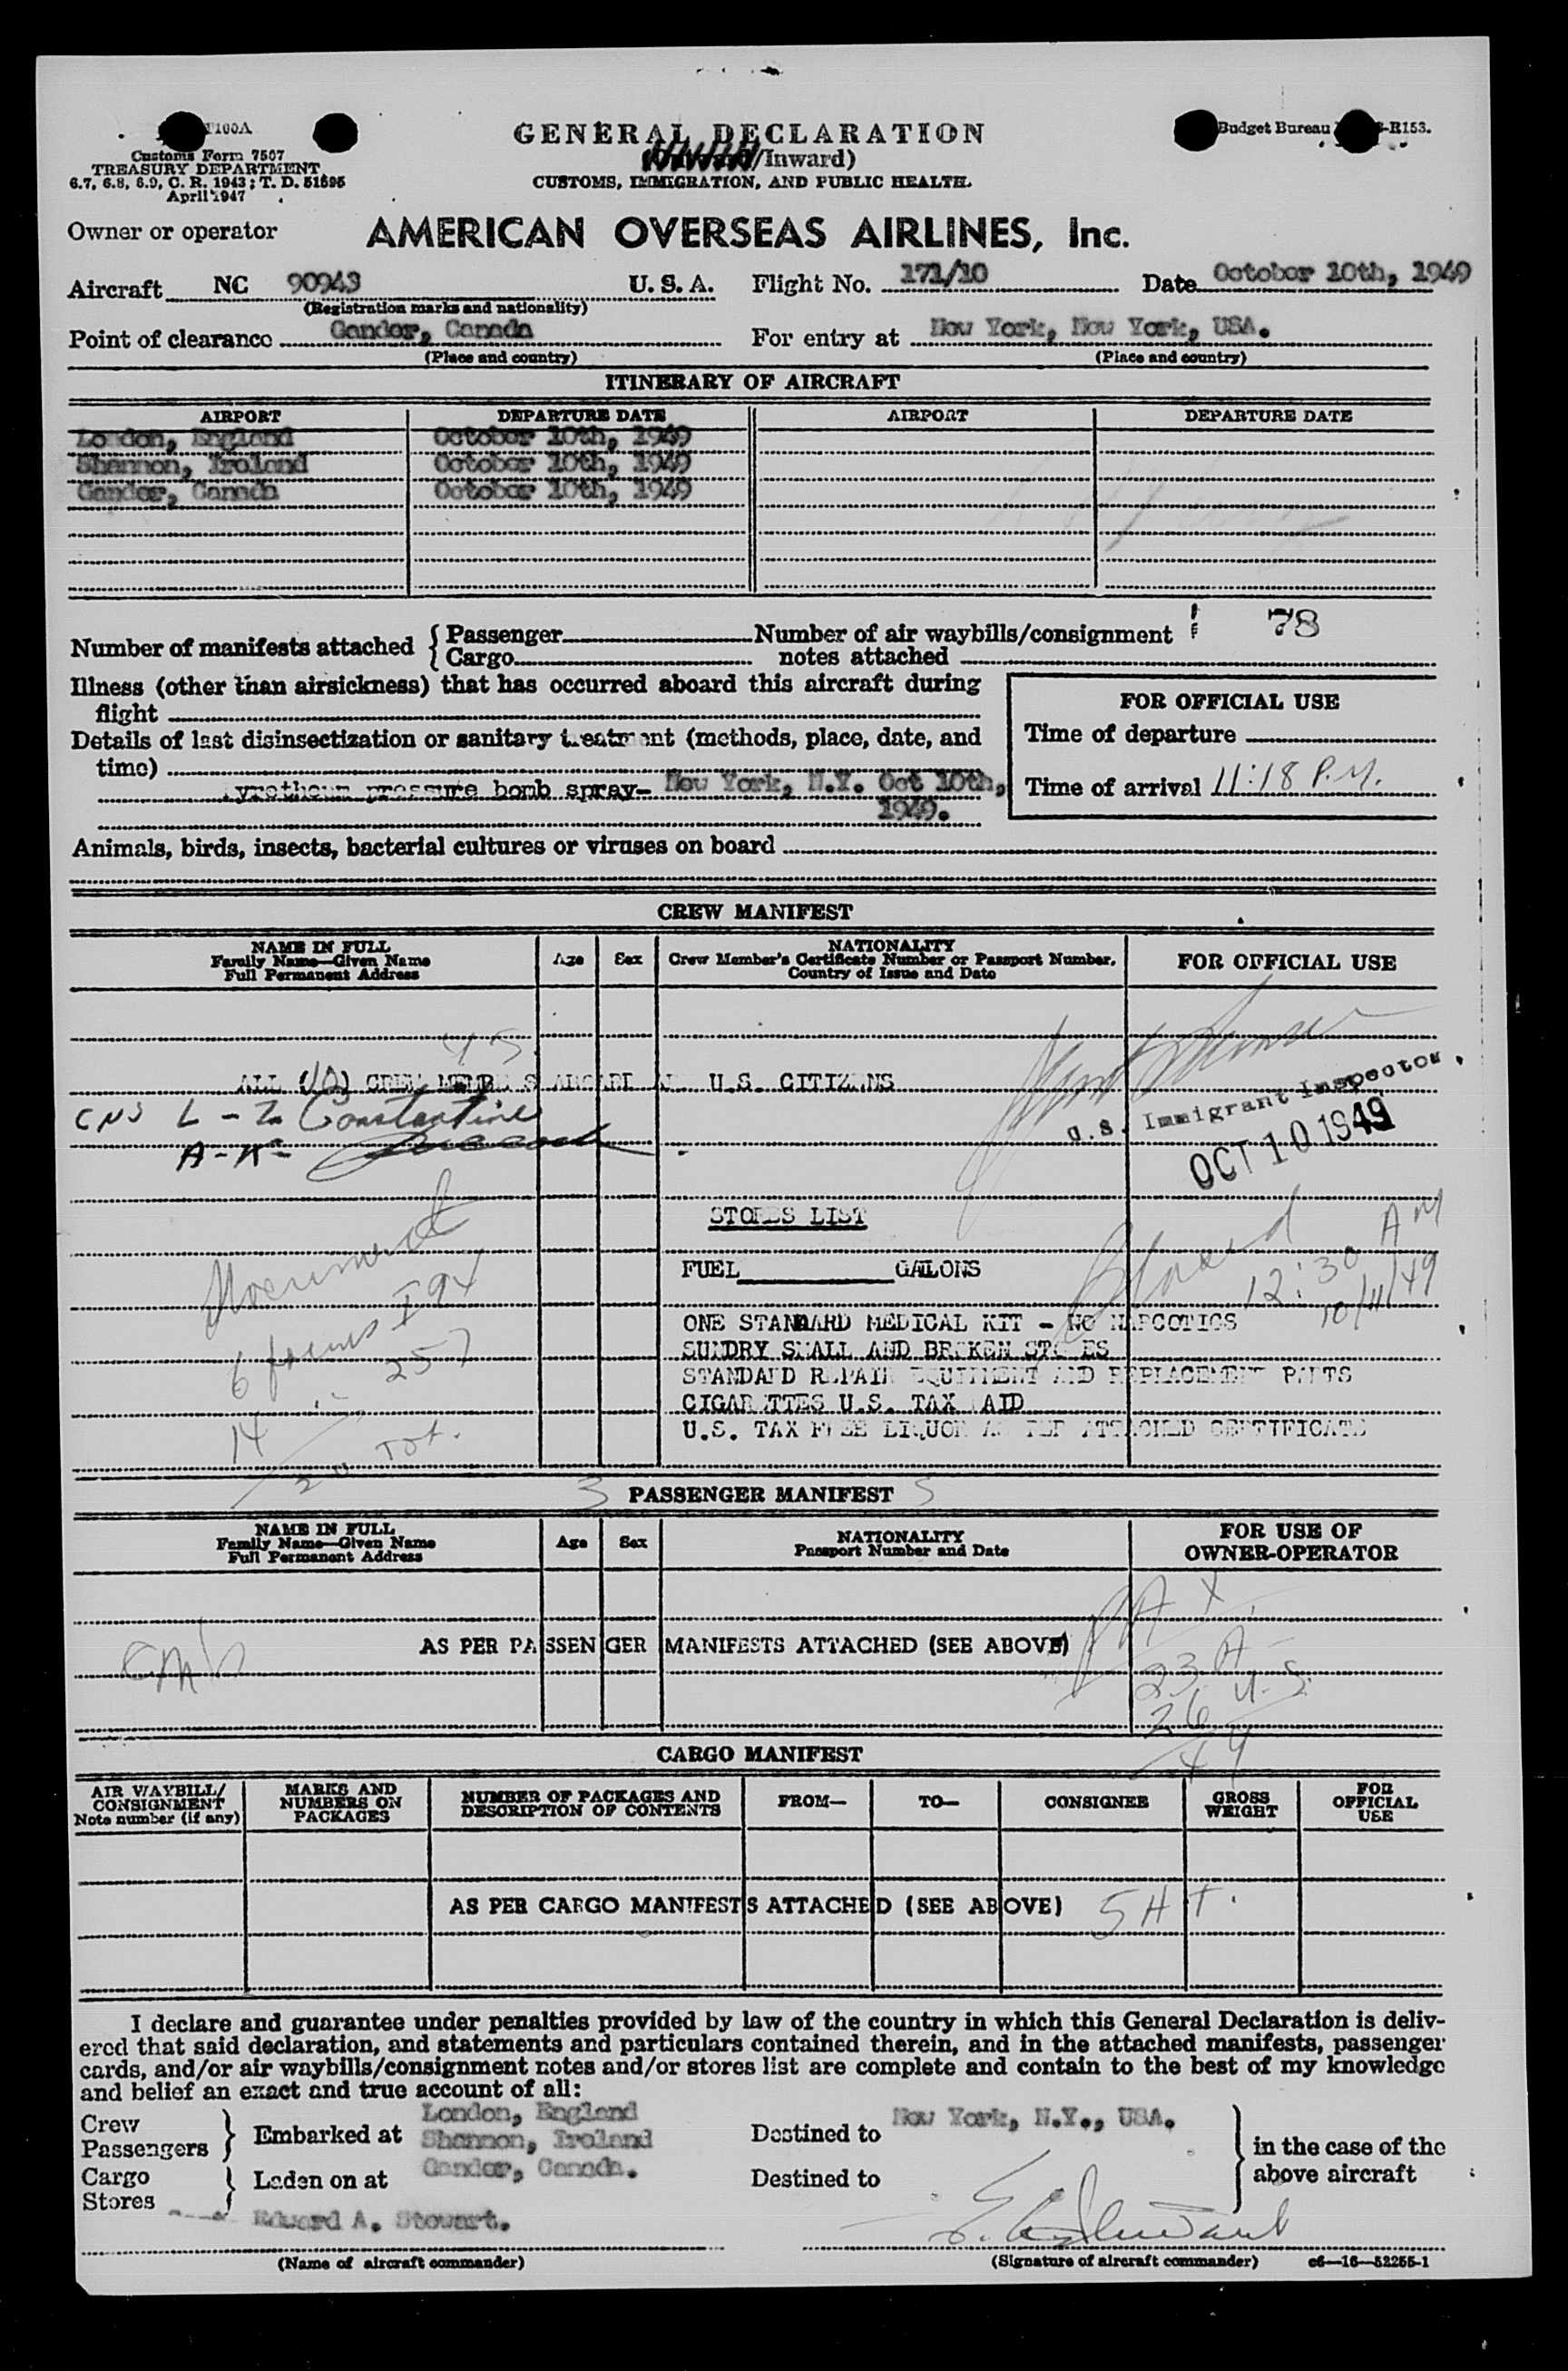 100A
Customs Form 7507
TREASURY DEPARTMENT
6.7, 6.8, 6.9, C. R. 1943; T. D. 51695
April 1947
GENERAL DECLARATION
/Inward)
CUSTOMS, IMMIGRATION, AND PUBLIC HEALTH.
Budget Bureau -R153.
Owner or operator AMERICAN OVERSEAS AIRLINES, Inc.
Aircraft NC 90943 U. S. A. Flight No. 171/10 Date October 10th, 1949
(Registration marks and nationality)
Point of clearance Gander, Canada For entry at New York, New York, USA.
(Place and country) (Place and country)
ITINERARY OF AIRCRAFT
AIRPORT DEPARTURE DATE AIRPORT DEPARTURE DATE
London, England October 10th, 1949
Shannon, Ireland October 10th, 1949
Gander, Canada October 10th, 1949
78
Number of manifests attached { Passenger Number of air waybills/consignment
Cargo notes attached
Illness (other than airsickness) that has occurred aboard this aircraft during
flight
Details of last disinsectization or sanitary treatment (methods, place, date, and
time)
Pyretheum pressure bomb spray- New York, N.Y. Oct 10th,
1949.
FOR OFFICIAL USE
Time of departure
Time of arrival 11:18 P.M.
Animals, birds, insects, bacterial cultures or viruses on board
CREW MANIFEST
NAME IN FULL
Family Name—Given Name
Full Permanent Address
Age Sex
NATIONALITY
Crew Member's Certificate Number or Passport Number,
Country of Issue and Date
FOR OFFICIAL USE
ALL (10) CREW MEMBERS ABOARD ARE U.S. CITIZENS
CNS L - Z Constantine
A-K-
U.S. Immigrant Inspector
OCT 10 1949
STORES LIST
FUEL GALONS
Cleared 12:30 AM
10/11/49
Document
6 forms I 94
14 " 257
20 Tot.
ONE STANDARD MEDICAL KIT - NO NARCOTICS
SUNDRY SMALL AND BROKEN STORES
STANDARD REPAIR EQUIPMENT AND REPLACEMENT PARTS
CIGARETTES U.S. TAX PAID
U.S. TAX FREE LIQUOR AS PER ATTACHED CERTIFICATE
3 PASSENGER MANIFEST 5
NAME IN FULL
Family Name—Given Name
Full Permanent Address
Age Sex
NATIONALITY
Passport Number and Date
FOR USE OF
OWNER-OPERATOR
PAX
AS PER PASSENGER MANIFESTS ATTACHED (SEE ABOVE)
23 A-
26 U-S
CARGO MANIFEST
AIR WAYBILL/
CONSIGNMENT
Note number (if any)
MARKS AND
NUMBERS ON
PACKAGES
NUMBER OF PACKAGES AND
DESCRIPTION OF CONTENTS
FROM— TO— CONSIGNEE
GROSS
WEIGHT
FOR
OFFICIAL
USE
AS PER CARGO MANIFESTS ATTACHED (SEE ABOVE) 5 Ht.
I declare and guarantee under penalties provided by law of the country in which this General Declaration is deliv-
ered that said declaration, and statements and particulars contained therein, and in the attached manifests, passenger
cards, and/or air waybills/consignment notes and/or stores list are complete and contain to the best of my knowledge
and belief an exact and true account of all:
Crew
Passengers } Embarked at London, England
Shannon, Ireland
Gander, Canada.
Destined to New York, N.Y., USA.
Cargo
Stores } Laden on at
Destined to
} in the case of the
above aircraft
Edward A. Stewart. E. A. Stewart
(Name of aircraft commander) (Signature of aircraft commander) c6—16—52255-1